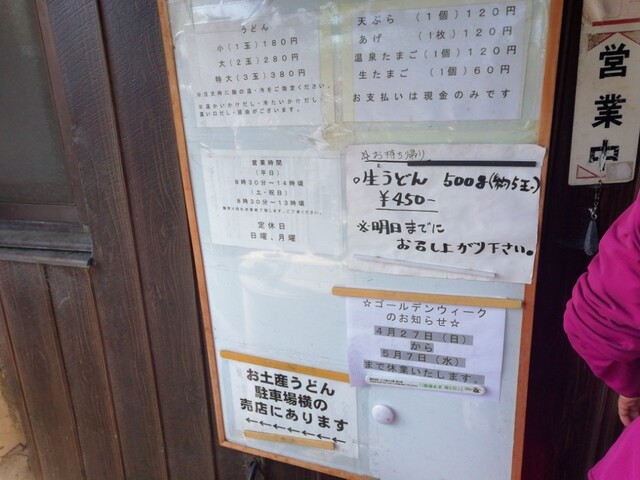 うどん
小(1玉)180円
大(2玉)280円
特大(3玉)380円
※注文時に麺の温・冷をご指定ください。
※温かいかけだし・冷たいかけだし
濃い口だし・醤油がございます。
天ぷら (1個)120円
あげ (1枚)120円
温泉たまご(1個)120円
生たまご (1個)60円
お支払いは現金のみです
営業中
営業時間
(平日)
8時30分~14時頃
(土・祝日)
8時30分~13時頃
定休日
日曜、月曜
※お持ち帰り
○生うどん 500g(約5玉)
¥450-
※明日までに
お召し上がり下さい。
☆ゴールデンウィーク
のお知らせ☆
4月27日(日)
から
5月7日(水)
まで休業いたします。
お土産うどん
駐車場横の
売店にあります
←←←←←←